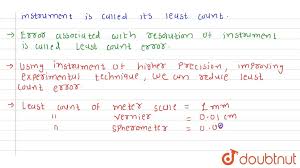 instrument is called its least count.
→ Error associated with resolution of instrument
is called least count error.
→ Using instrument of higher precision, improving
experimental technique, we can reduce least
count error
→ Least count of meter scale = 1 mm
" vernier = 0.01 cm
" spherometer = 0.00
doubtnut